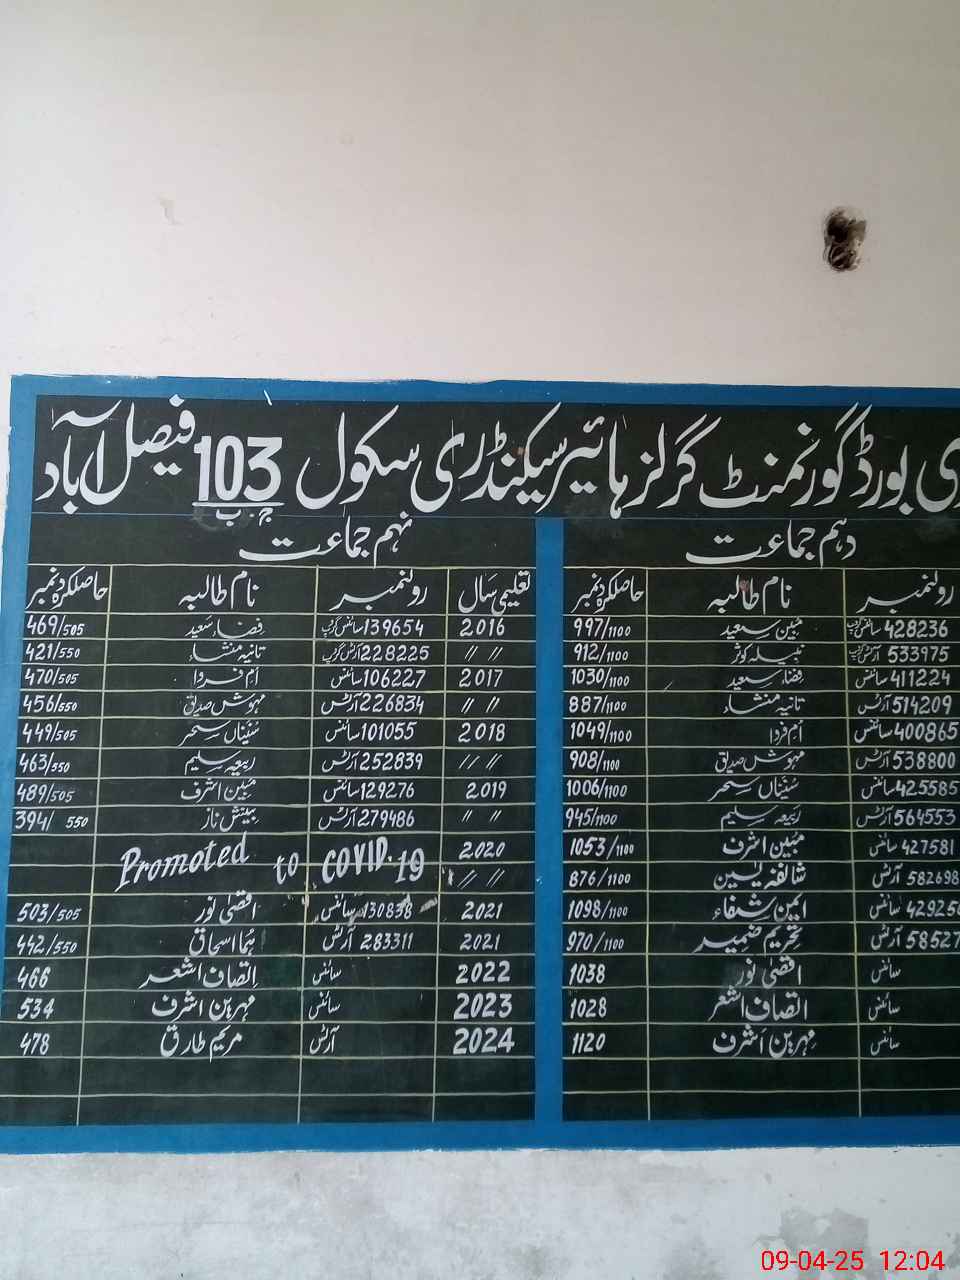 ی بورڈ گورنمنٹ گرلز ہائیر سیکنڈری سکول 103 ج ب فیصل آباد
دہم جماعت
رولنمبر نام طالبہ حاصلکردہ نمبر
428236 سائنس گروپ مبین سعید 997/1100
533975 آرٹس گروپ نبیلہ کوثر 912/1100
411224 سائنس فضاء سعید 1030/1100
514209 آرٹس تانیہ منشاء 887/1100
400865 سائنس ام فروا 1049/1100
538800 آرٹس مہوش صدیق 908/1100
425585 سائنس سحر 1006/1100
564553 آرٹس ربیعہ سلیم 945/1100
427581 سائنس مبین اشرف 1053/1100
582698 آرٹس شائفہ یٰسین 876/1100
42925 سائنس ایمن شفاء 1098/1100
58527 آرٹس تحریم ضمیر 970/1100
سائنس اقصیٰ نور 1038
سائنس انصاف اشعر 1028
سائنس مہرین اشرف 1120
نہم جماعت
تعلیمی سال رولنمبر نام طالبہ حاصلکردہ نمبر
2016 139654 سائنس گروپ فضاء سعید 469/505
〃 〃 228225 آرٹس گروپ تانیہ منشاء 421/550
2017 106227 سائنس ام فروا 470/505
〃 〃 226834 آرٹس مہوش صدیق 456/550
2018 101055 سائنس سحر 449/505
〃 〃 252839 آرٹس ربیعہ سلیم 463/550
2019 129276 سائنس مبین اشرف 489/505
〃 〃 279486 آرٹس بینش ناز 394/550
Promoted to COVID.19 2020
〃 〃
2021 130838 سائنس اقصیٰ نور 503/505
2021 283311 آرٹس ہما اسحاق 442/550
2022 سائنس انصاف اشعر 466
2023 سائنس مہرین اشرف 534
2024 آرٹس مریم طارق 478
09-04-25 12:04